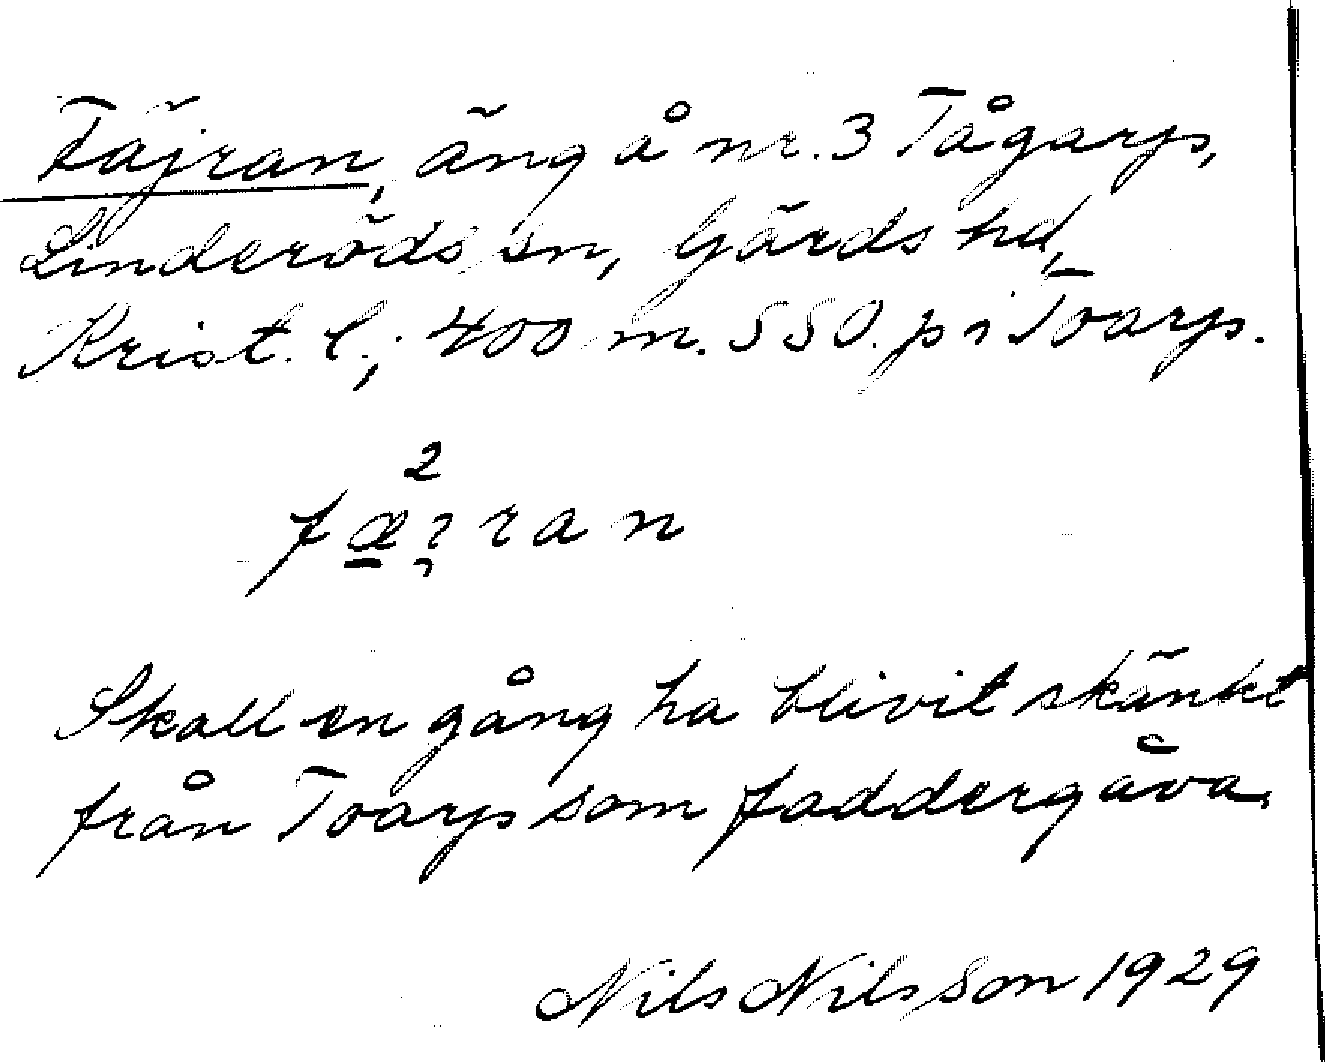 Fäjran, äng å nr. 3 Tågarp,
Linderöds sn, Gärds hd,
Krist. l.; 400 m. SSO. p i Toarp.
2
fæɿran
Skall en gång ha blivit skänkt
från Toarp som faddergåva.
Nils Nilsson 1929